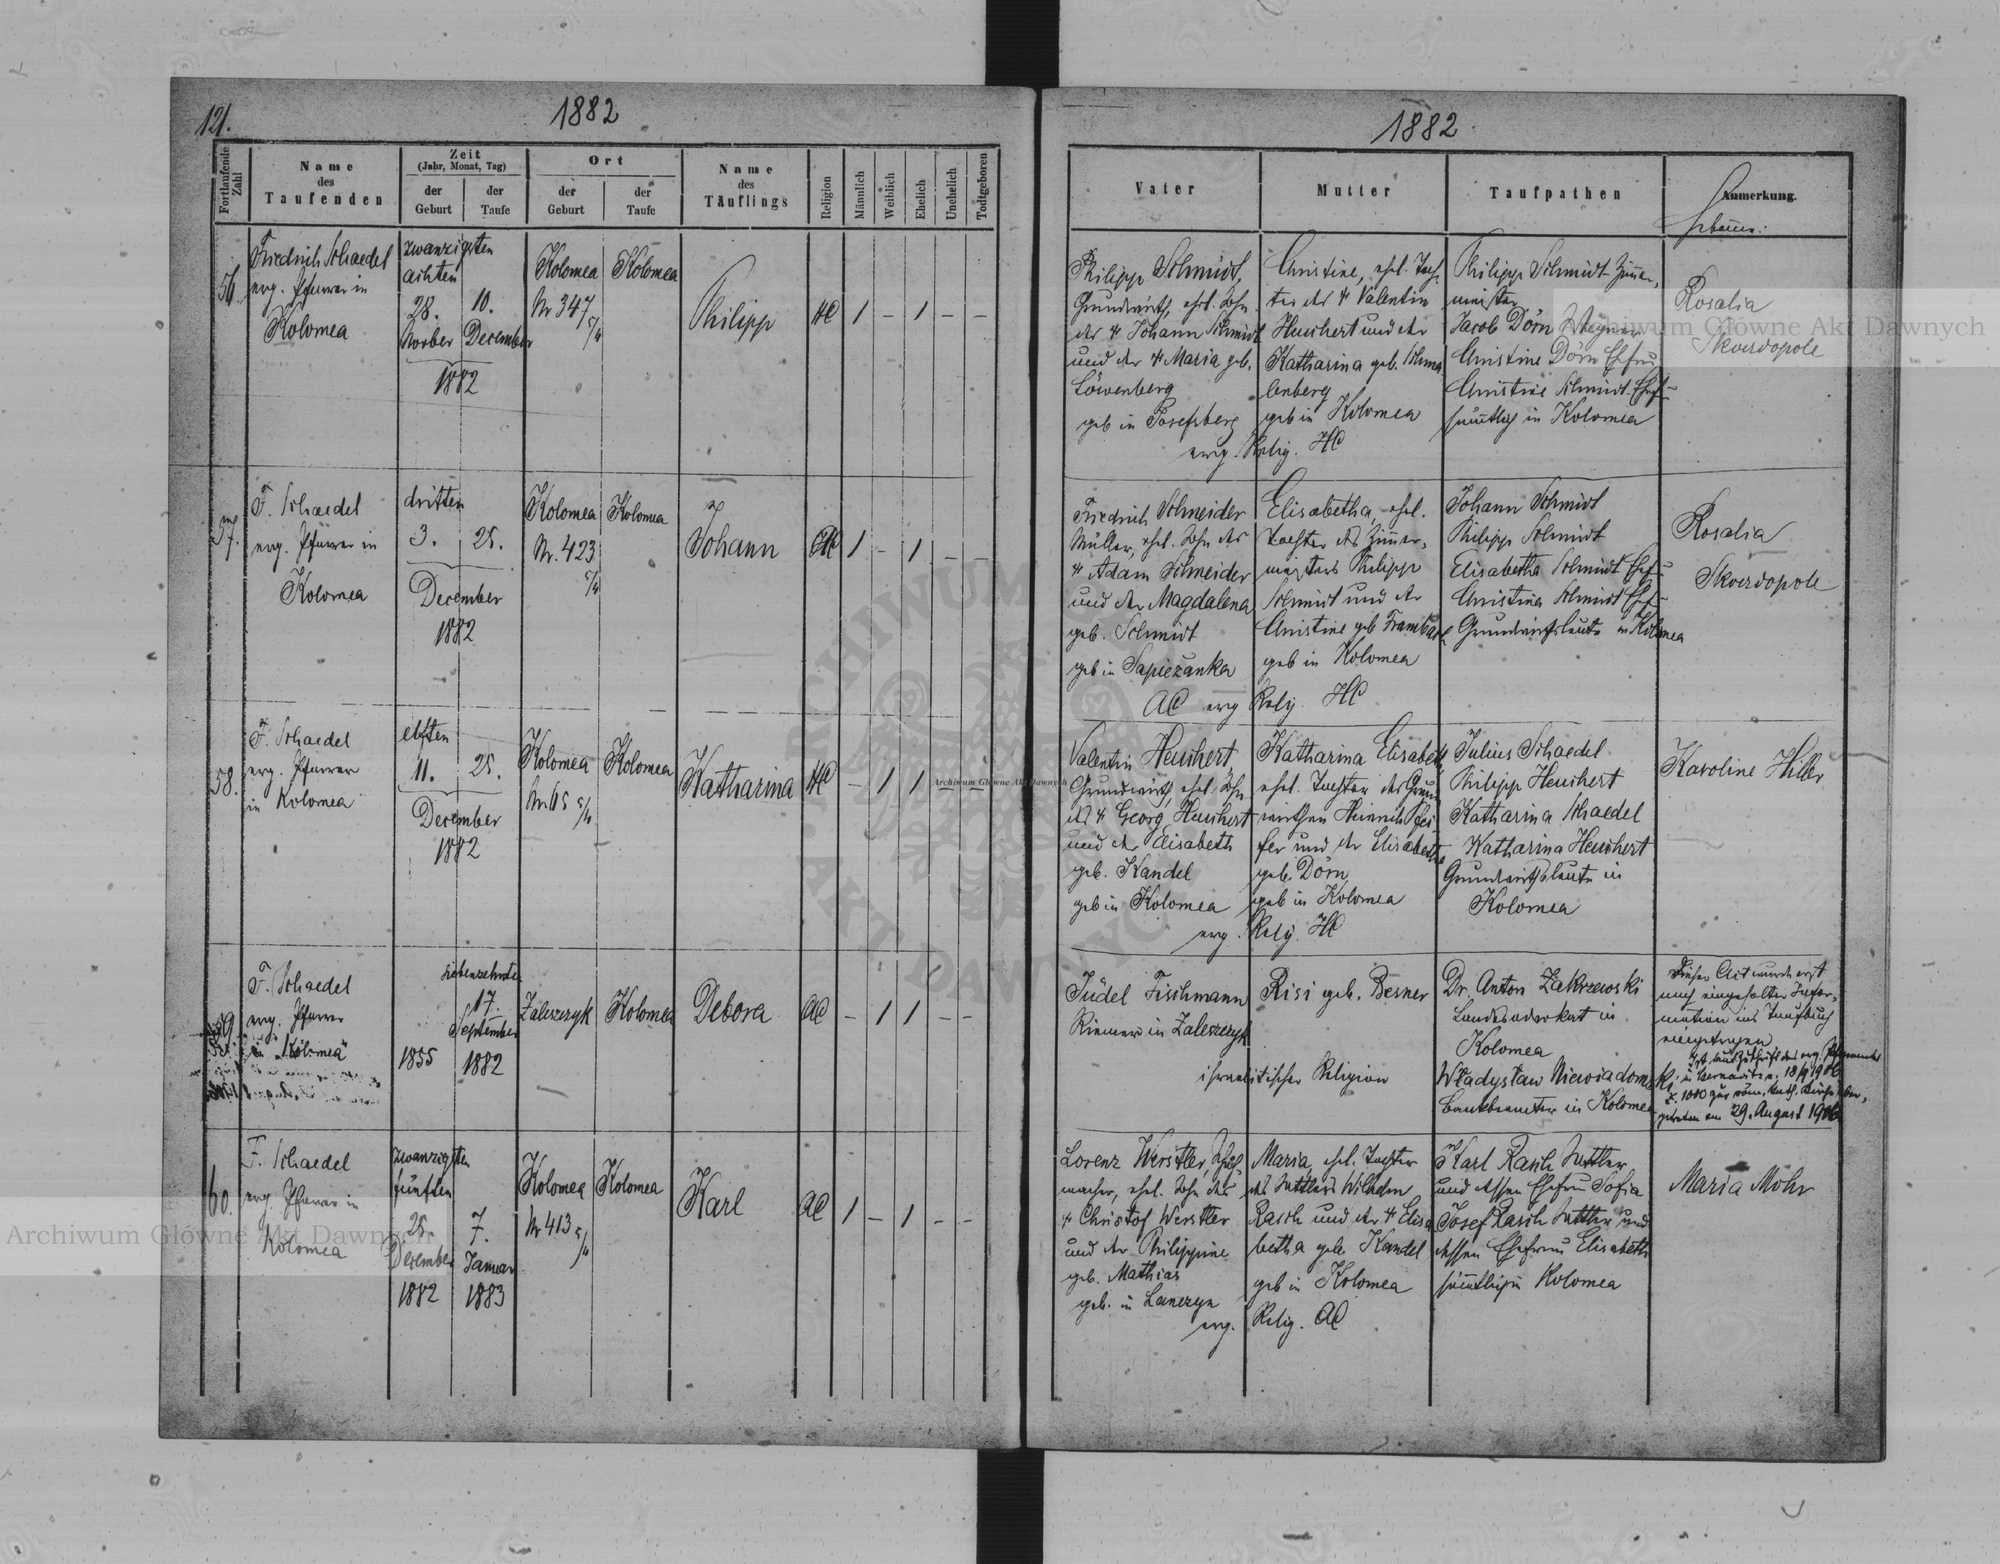 121.
1882
Fortlaufende Zahl
Name des Taufenden
Zeit
(Jahr, Monat, Tag)
der Geburt
der Taufe
Ort
der Geburt
der Taufe
Name des Täuflings
Religion
Männlich
Weiblich
Ehelich
Unehelich
Todtgeboren
56.
Friedrich Schaedel
erg. Pfarrer in
Kolomea
zwanzigsten
achten
28.
10.
December
1882
Kolomea
Nr 347
5/4
Kolomea
Philipp
HC
1 – 1 – –
57.
F. Schaedel
erg. Pfarrer in
Kolomea
dritten
3.
25.
December
1882
Kolomea
Nr. 423
5/4
Kolomea
Johann
1 – 1 – –
58.
F. Schaedel
erg. Pfarrer
in Kolomea
elften
11.
25.
December
1882
Kolomea
5/4
Kolomea
Katharina
HC
– 1 1 – –
F. Schaedel
erg. Pfarrer
in Kolomea
siebenzehnten
17.
September
1855
1882
Zaleszczyk
Kolomea
Debora
AC
– 1 1 – –
60.
F. Schaedel
erg. Pfarrer in
Kolomea
zwanzigsten
fünften
25.
7.
December
Januar
1882
1883
Kolomea
Nr 413 5/4
Kolomea
Karl
AC
1 – 1 – –
1882.
Vater
Mutter
Taufpathen
Anmerkung.
Philipp Schmidt,
Grundwirth, ehel. Sohn
des + Johann Schmidt
und der + Maria geb.
Löwenberg
geb in Josefsberg
Christine, ehel. Toch-
ter des + Valentin
Heuchert und der
Katharina geb.
lenberg
geb in Kolomea
erg. Relig. HC
Philipp Schmidt Zimmer-
meister
Jacob Dörn Wagner
Christine Dörn Ehefrau
Christine Schmidt Ehef-
sämtlich in Kolomea
Rosalia
Skoerdopole
Friedrich Schneider
Müller, ehel. Sohn des
+ Adam Schneider
und der Magdalena
geb. Schmidt
geb in Sapiezanka
AC erg Relig. HC
Elisabetha, ehel.
Tochter des Zimmer-
meisters Philipp
Schmidt und der
Christine geb
geb in Kolomea
Johann Schmidt
Philipp Schmidt
Elisabetha Schmidt
Christina Schmidt
Grundwirthsleute in Kolomea
Rosalia
Skoerdopole
Valentin Heuchert,
Grundwirth, ehel. Sohn
des + Georg Heuchert
und der Elisabeth
geb. Kandel
geb in Kolomea
Katharina Elisabeth
ehel. Tochter des Grund
wirthen Heinrich Pfei
fer und der Elisabetha
geb. Dörn,
geb in Kolomea
erg. Relig. HC
Julius Schaedel
Philipp Heuchert
Katharina Schaedel
Katharina Heuchert
Grundwirthsleute in
Kolomea
Karoline Hiller
Jüdel Fischmann
Riemer in Zaleszczyk
Risi geb. Besner
israelitischer Religion
Dr. Anton Zakrzewski
Landesadvokat in
Kolomea
Władysław Niewiadomski
Bankbeamter in Kolomea
Dieser Act wurde erst
nach eingeholter Infor-
mation ins Taufbuch
eingetragen
29. August 1906
Lorenz Werstler,
macher, ehel. Sohn des
+ Christof Werstler
und der Philippine
geb. Mathias
geb. in Lanczyn
erg. Relig. AC
Maria, ehel. Tochter
des Sattlers Wilhelm
Rasch und der + Elisa
betha geb. Kandel
geb in Kolomea
Karl Rasch Sattler
und dessen Ehefrau Sofia
Josef Rasch Sattler und
dessen Ehefrau Elisabeth
sämtlich in Kolomea
Maria Mohr
Archiwum Główne Akt Dawnych
Archiwum Główne Akt Dawnych
Archiwum Główne Akt Dawnych
ARCHIWUM
AKT DAWNYCH